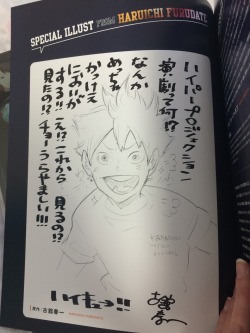 SPECIAL ILLUST FROM HARUICHI FURUDATE
ハイパープロジェクション
演劇って何!?
なんか
めっちゃ
かっけえ
においが
する!!え!?これから
見るの!?
見たの!?チョーうらやましい!!!
ハイキュー!!
原作/古舘春一